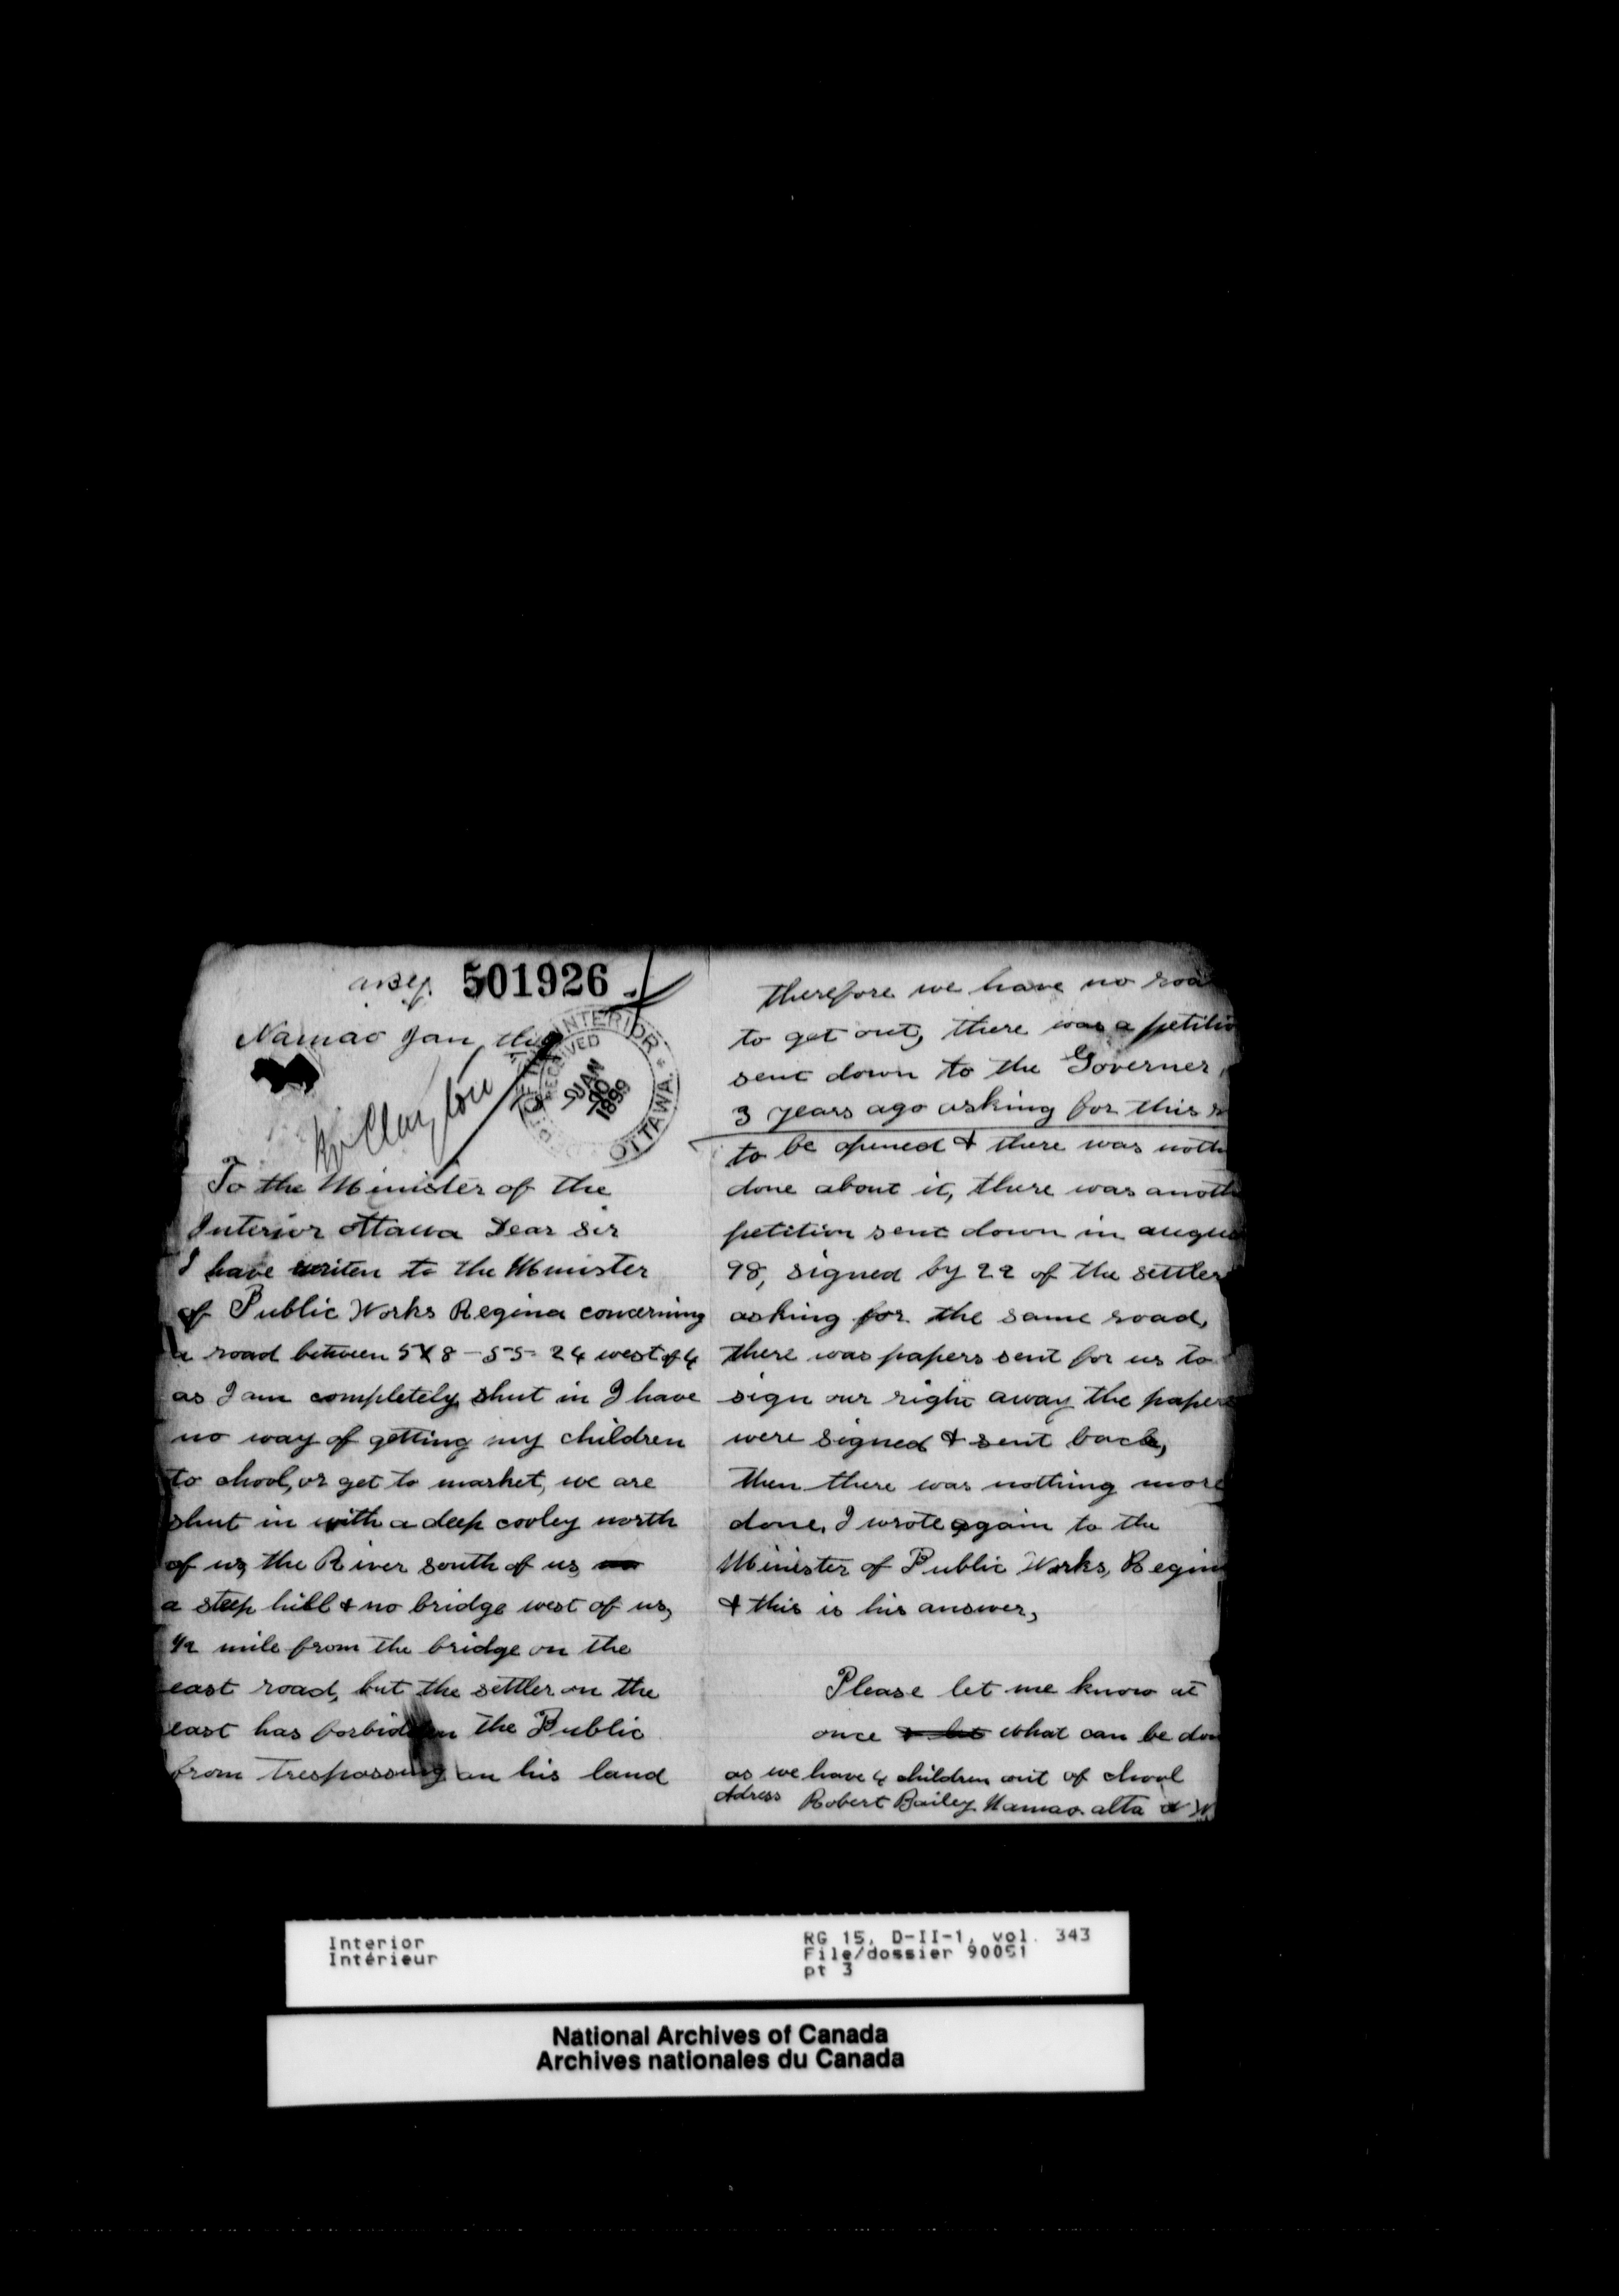 501926
Namao Jan, the
INTERIOR
RECEIVED
JAN
30
1899
OTTAWA.
To the Minister of the
Interior Ottawa Dear Sir
I have writen to the Minister
of Public Works Regina concerning
a road between 5 & 8 - 55 - 24 west of 4
as I am completely shut in I have
no way of getting my children
to chool, or get to market, we are
shut in with a deep cooley north
of us, the River south of us
a steep hill & no bridge west of us,
1/2 mile from the bridge on the
east road, but the settler on the
east has forbidden the Public
from trespassing on his land
therefore we have no roa
to get out, there was a petitio
sent down to the Governer,
3 years ago asking for this
to be opened & there was noth
done about it, there was anoth
petition sent down in augu
98, signed by 22 of the settler
asking for the same road,
there was papers sent for us to
sign our right away the papers
were signed & sent back,
then there was nothing more
done, I wrote again to the
Minister of Public Works, Regin
& this is his answer,
Please let me know at
once & let what can be don
as we have 4 children out of chool
Adress Robert Bailey Namao. alta
Interior
Intérieur
RG 15, D-II-1, vol. 343
File/dossier 90051
pt 3
National Archives of Canada
Archives nationales du Canada